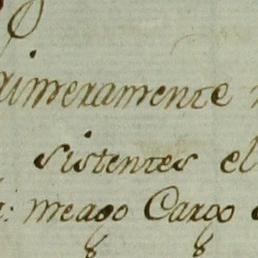 rimeramente
sistentes el
meago Cargo